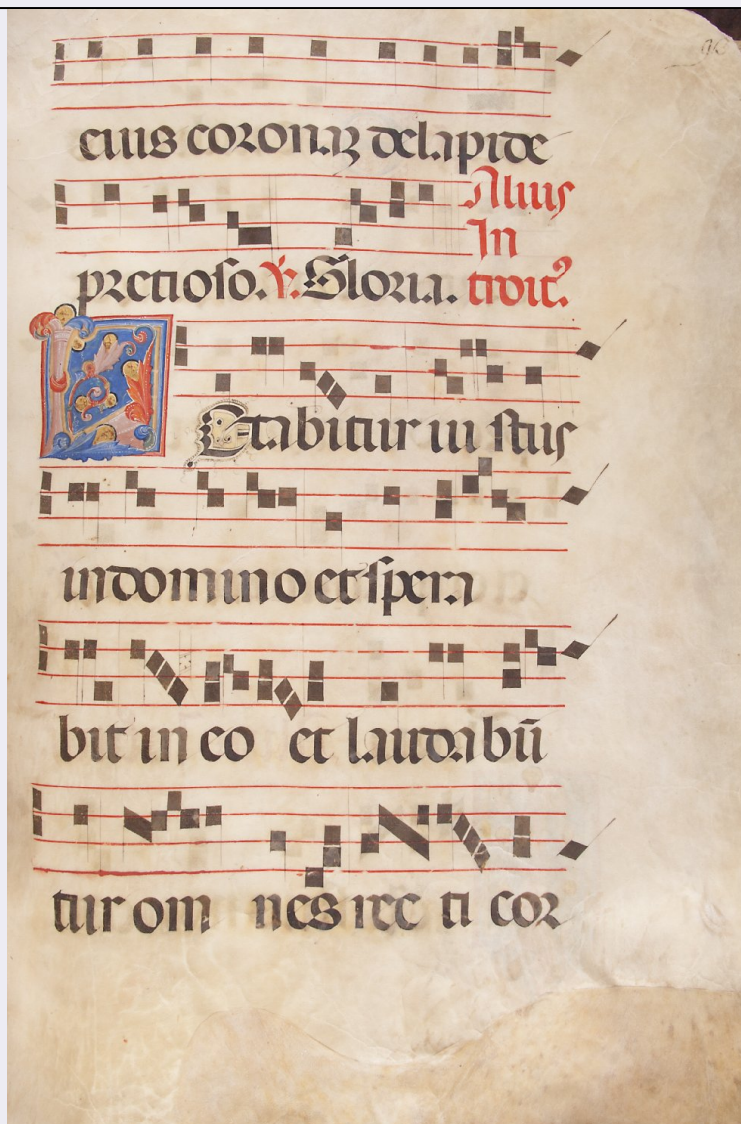 eius coronaꝫ de lapide
pretioso. ℣. Gloria.
Alius
In
troitꝰ.
Letabitur iustus
in domino et spera
bit in eo et laudabū
tur omnes recti cor